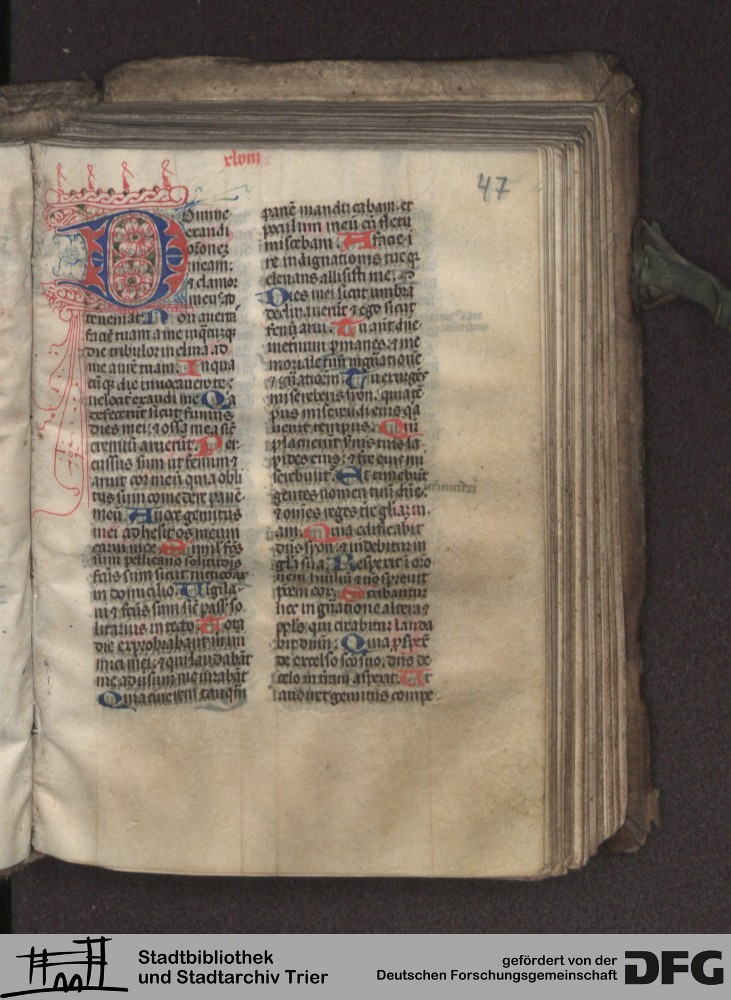 xlviii
47
Domine
exaudi
or̄onez
meam:
⁊ clamor
meus ad
te veniat Non auertas
facie͞ tuam a me in q̄cu͞q
die tribulor inclina ad
me aure͞ tuam. In qua
cu͞q die inuocauero te:
velociter exaudi me Quia
defecerunt sicut fumus
dies mei: ⁊ ossa mea sic̄
cremiu͞ aruerūt. Per
cussus sum ut fenum ⁊
aruit cor meu͞ quia obli
tus sum comedere pane͞
meu͞. A uoce gemitus
mei adhesit os meum
carni mee. Similis fc̄us
sum pellicano solitudinis
fc̄us sum sicut nicticorax
in domicilio. Vigila
ui ⁊ fc̄us sum sic̄ passer so
litarius in tecto. Tota
die exprobrabant michi
inimici mei: ⁊ qui laudabāt
me aduersum me iurabāt
Quia cinerem tanq̄m
pane͞ manducabam: et
poculum meu͞ cu͞ fletu
miscebam. A facie i
re indignationis tue q̄
eleuans allisisti me.
Dies mei sicut umbra
declinauerūt ⁊ ego sicut
fenu͞ arui. Tu aut͞ dn̄e
in eternum p͞manes: ⁊ me
moriale tuu͞ in gn̄atione͞
⁊ gn̄atione͞. Tu exurgēs
misereberis syon. quia te͞
pus miserendi eius q̄a
uenit tempus. Qm̄
placuerūt s̄uis tuis la
pides eius: ⁊ t̄re eius mi
serebunt͞. Et timebūt
gentes nomen tuu͞ dn̄e:
⁊ om̄es reges t̄re gl̄iam
tuam. Quia edificabit
dn̄s syon: ⁊ uidebitur in
gl̄ia sua. Respexit i oro
nem humiliū ⁊ nō spreuit
precem eor͞. Scribantur
hec in gn̄atione altera ⁊
ppl̄s qui creabitur lauda
bit dn̄m: Quia ꝓspexit
de excelso sc̄o suo. dn̄s de
celo in terram aspexit. Ut
audiret gemitus compe
Stadtbibliothek
und Stadtarchiv Trier
gefördert von der
Deutschen Forschungsgemeinschaft
DFG